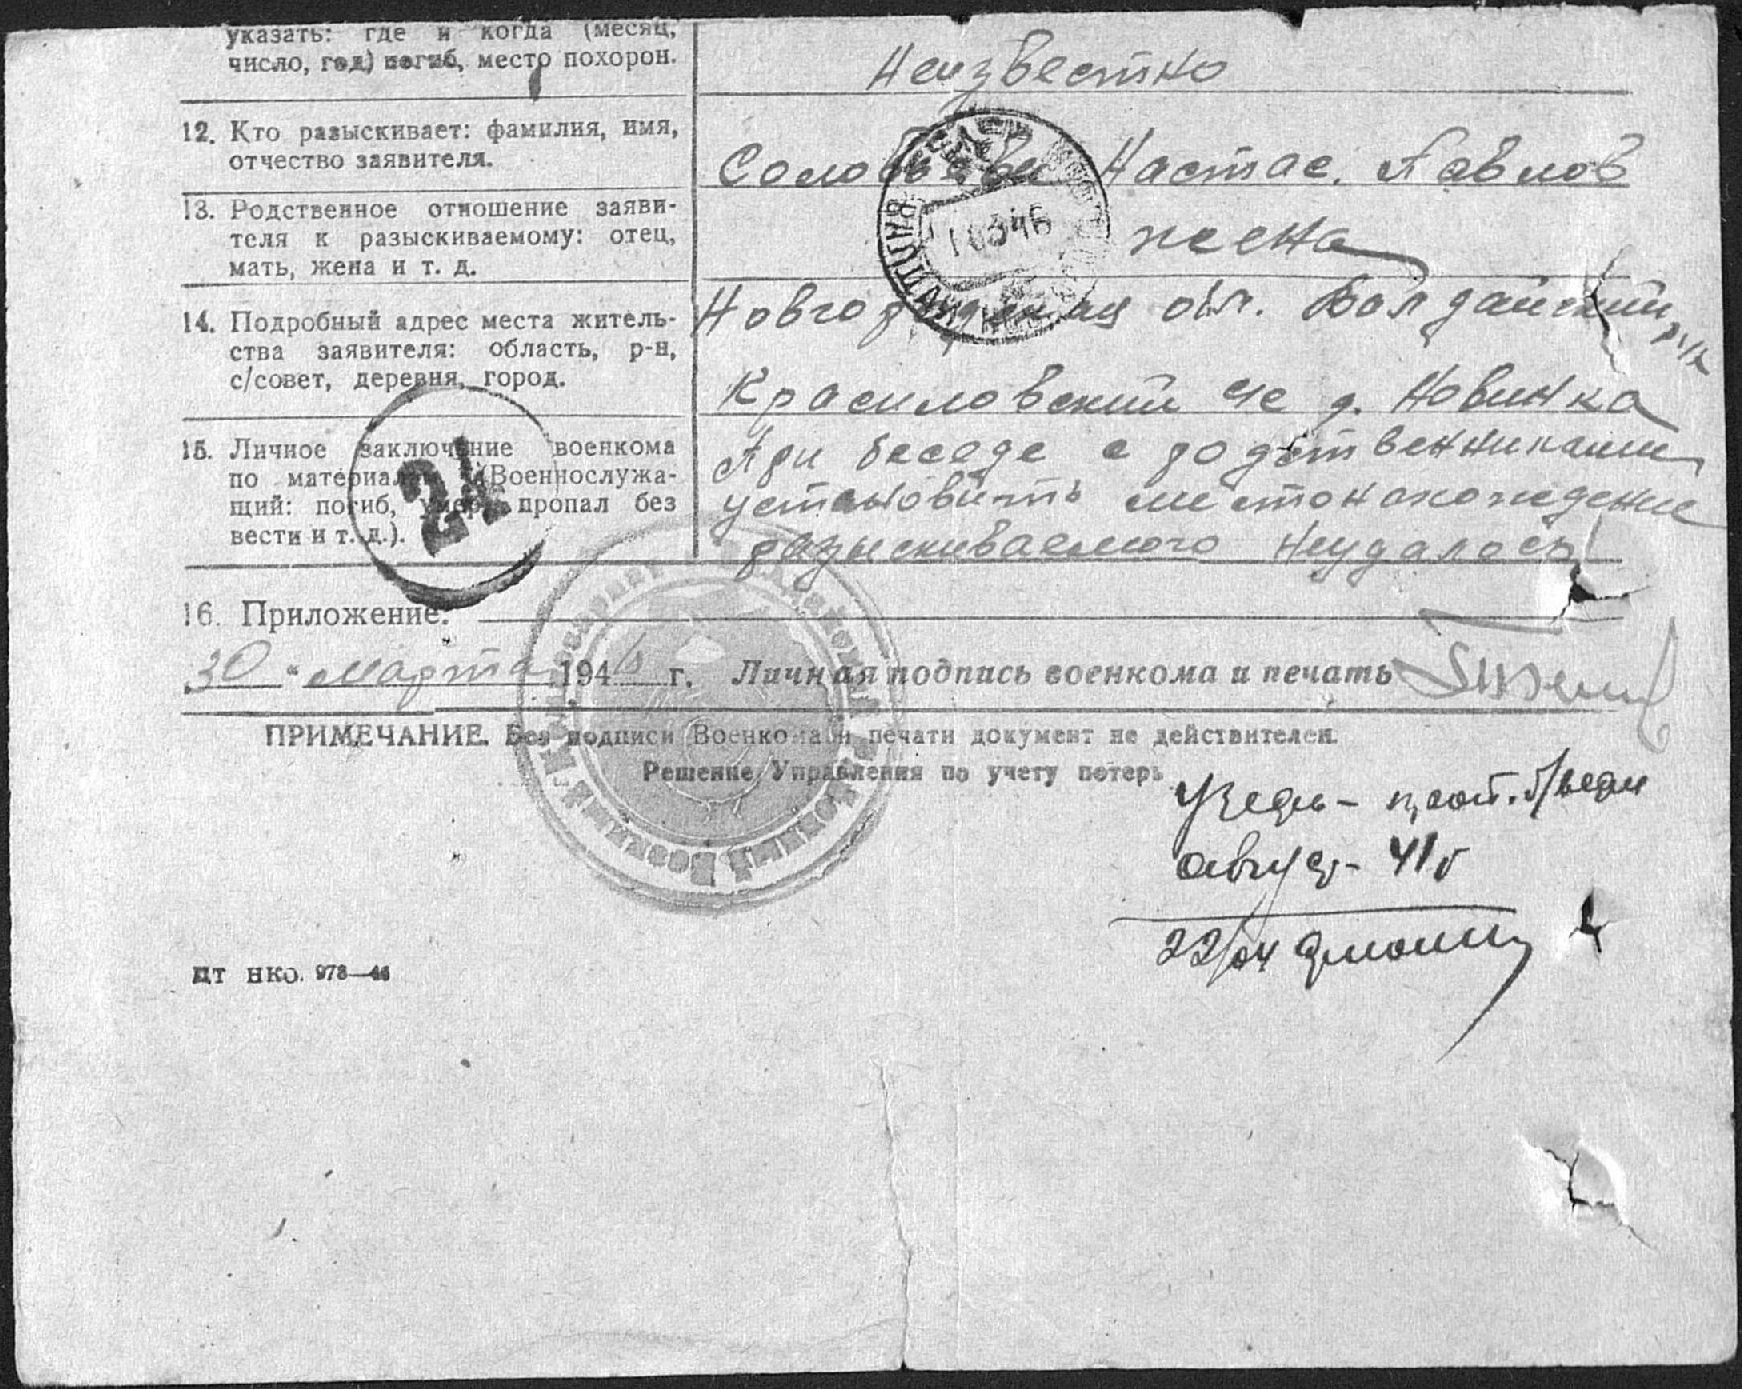 указать: где и когда (месяц,
число, год) погиб, место похорон.
Неизвестно
12. Кто разыскивает: фамилия, имя,
отчество заявителя.
Соловьева Настас. Павлов
13. Родственное отношение заяви-
теля к разыскиваемому: отец,
мать, жена и т. д.
жена
14. Подробный адрес места житель-
ства заявителя: область, р-н,
с/совет, деревня, город.
обл. Валдайский р-н
Красиловский с/с д. Новинка
15. Личное заключение военкома
по материалам (Военнослужа-
щий: погиб, умер, пропал без
вести и т. д.).
При беседе с родственниками
установить местонахождение
разыскиваемого неудалось
24
16. Приложение.
30 " марта 1946 г. Личная подпись военкома и печать
ПРИМЕЧАНИЕ. Без подписи Военкома и печати документ не действителен.
Решение Управления по учету потерь
проп. б/вести
август 41 г
22/04
НКО. 978—44